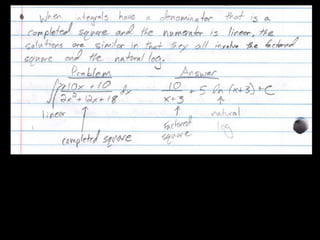 • When integrals have a denominator that is a
completed square and the numerator is linear, the
solutions are similar in that they all involve the factored
square and the natural log.
Problem Answer
∫ (10x + 10)/(2x² + 12x + 18) dx 10/(x+3) + 5 ln (x+3) + C
linear ↑ ↑ ↑ natural
completed square factored square log